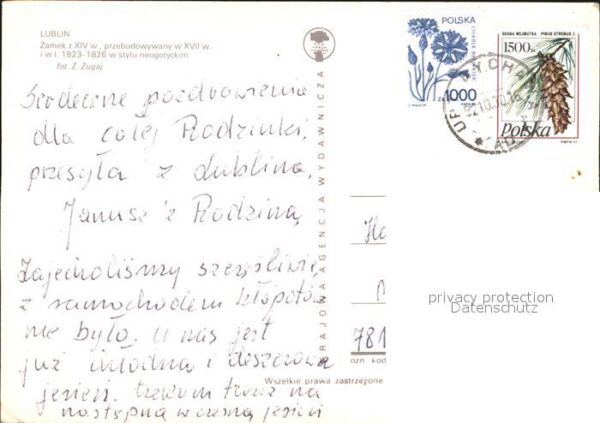 LUBLIN
Zamek z XIV w., przebudowywany w XVII w.
i w l. 1823-1826 w stylu neogotyckim
fot. Z. Zugaj
Serdeczne pozdrowienia
dla całej Rodzinki,
przesyła z Lublina,
Janusz z Rodziną
Zajechaliśmy szczęśliwie
z samochodem kłopotów
nie było. U nas jest
już chłodna i deszczowa
jesień. teraz na
następną wczesną jesień
KRAJOWA AGENCJA WYDAWNICZA
POLSKA
1000
SOSNA WEJMUTKA PINUS STROBUS L.
1500zł
Polska
781
privacy protection
Datenschutz
Wszelkie prawa zastrzeżone